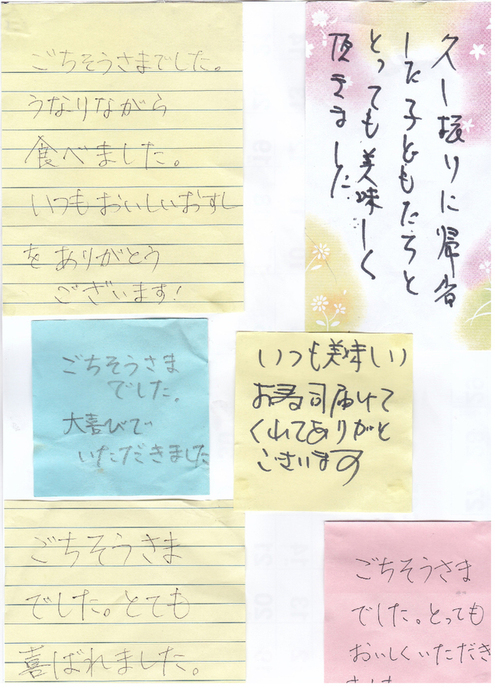 ごちそうさまでした。
うなりながら
食べました。
いつもおいしいおすし
をありがとう
ございます!
久し振りに帰省
した子どもたちと
とっても美味しく
頂きました
ごちそうさま
でした。
大喜びで
いただきました
いつも美味しい
お寿司届けて
くれてありがと
ございます
ごちそうさま
でした。とても
喜ばれました。
ごちそうさま
でした。とっても
おいしくいただき
ました